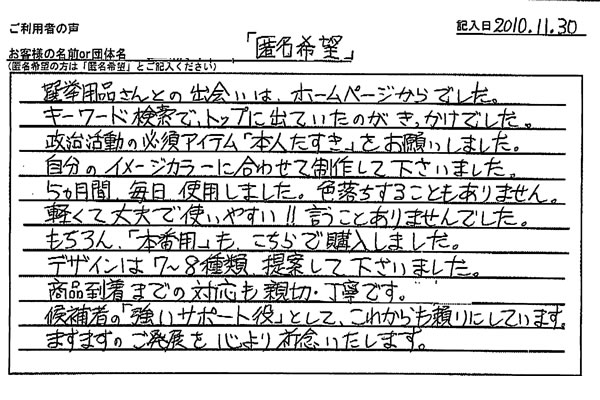 ご利用者の声
記入日 2010.11.30
お客様の名前or団体名
(匿名希望の方は「匿名希望」とご記入ください)
「匿名希望」
選挙用品さんとの出会いは、ホームページからでした。
キーワード検索で、トップに出ていたのがきっかけでした。
政治活動の必須アイテム「本人たすき」をお願いしました。
自分のイメージカラーに合わせて制作して下さいました。
5ヵ月間、毎日使用しました。色落ちすることもありません。
軽くて丈夫で使いやすい!!言うことありませんでした。
もちろん、「本番用」も、こちらで購入しました。
デザインは7〜8種類、提案して下さいました。
商品到着までの対応も親切・丁寧です。
候補者の「強いサポート役」として、これからも頼りにしています。
ますますのご発展を心より祈念いたします。